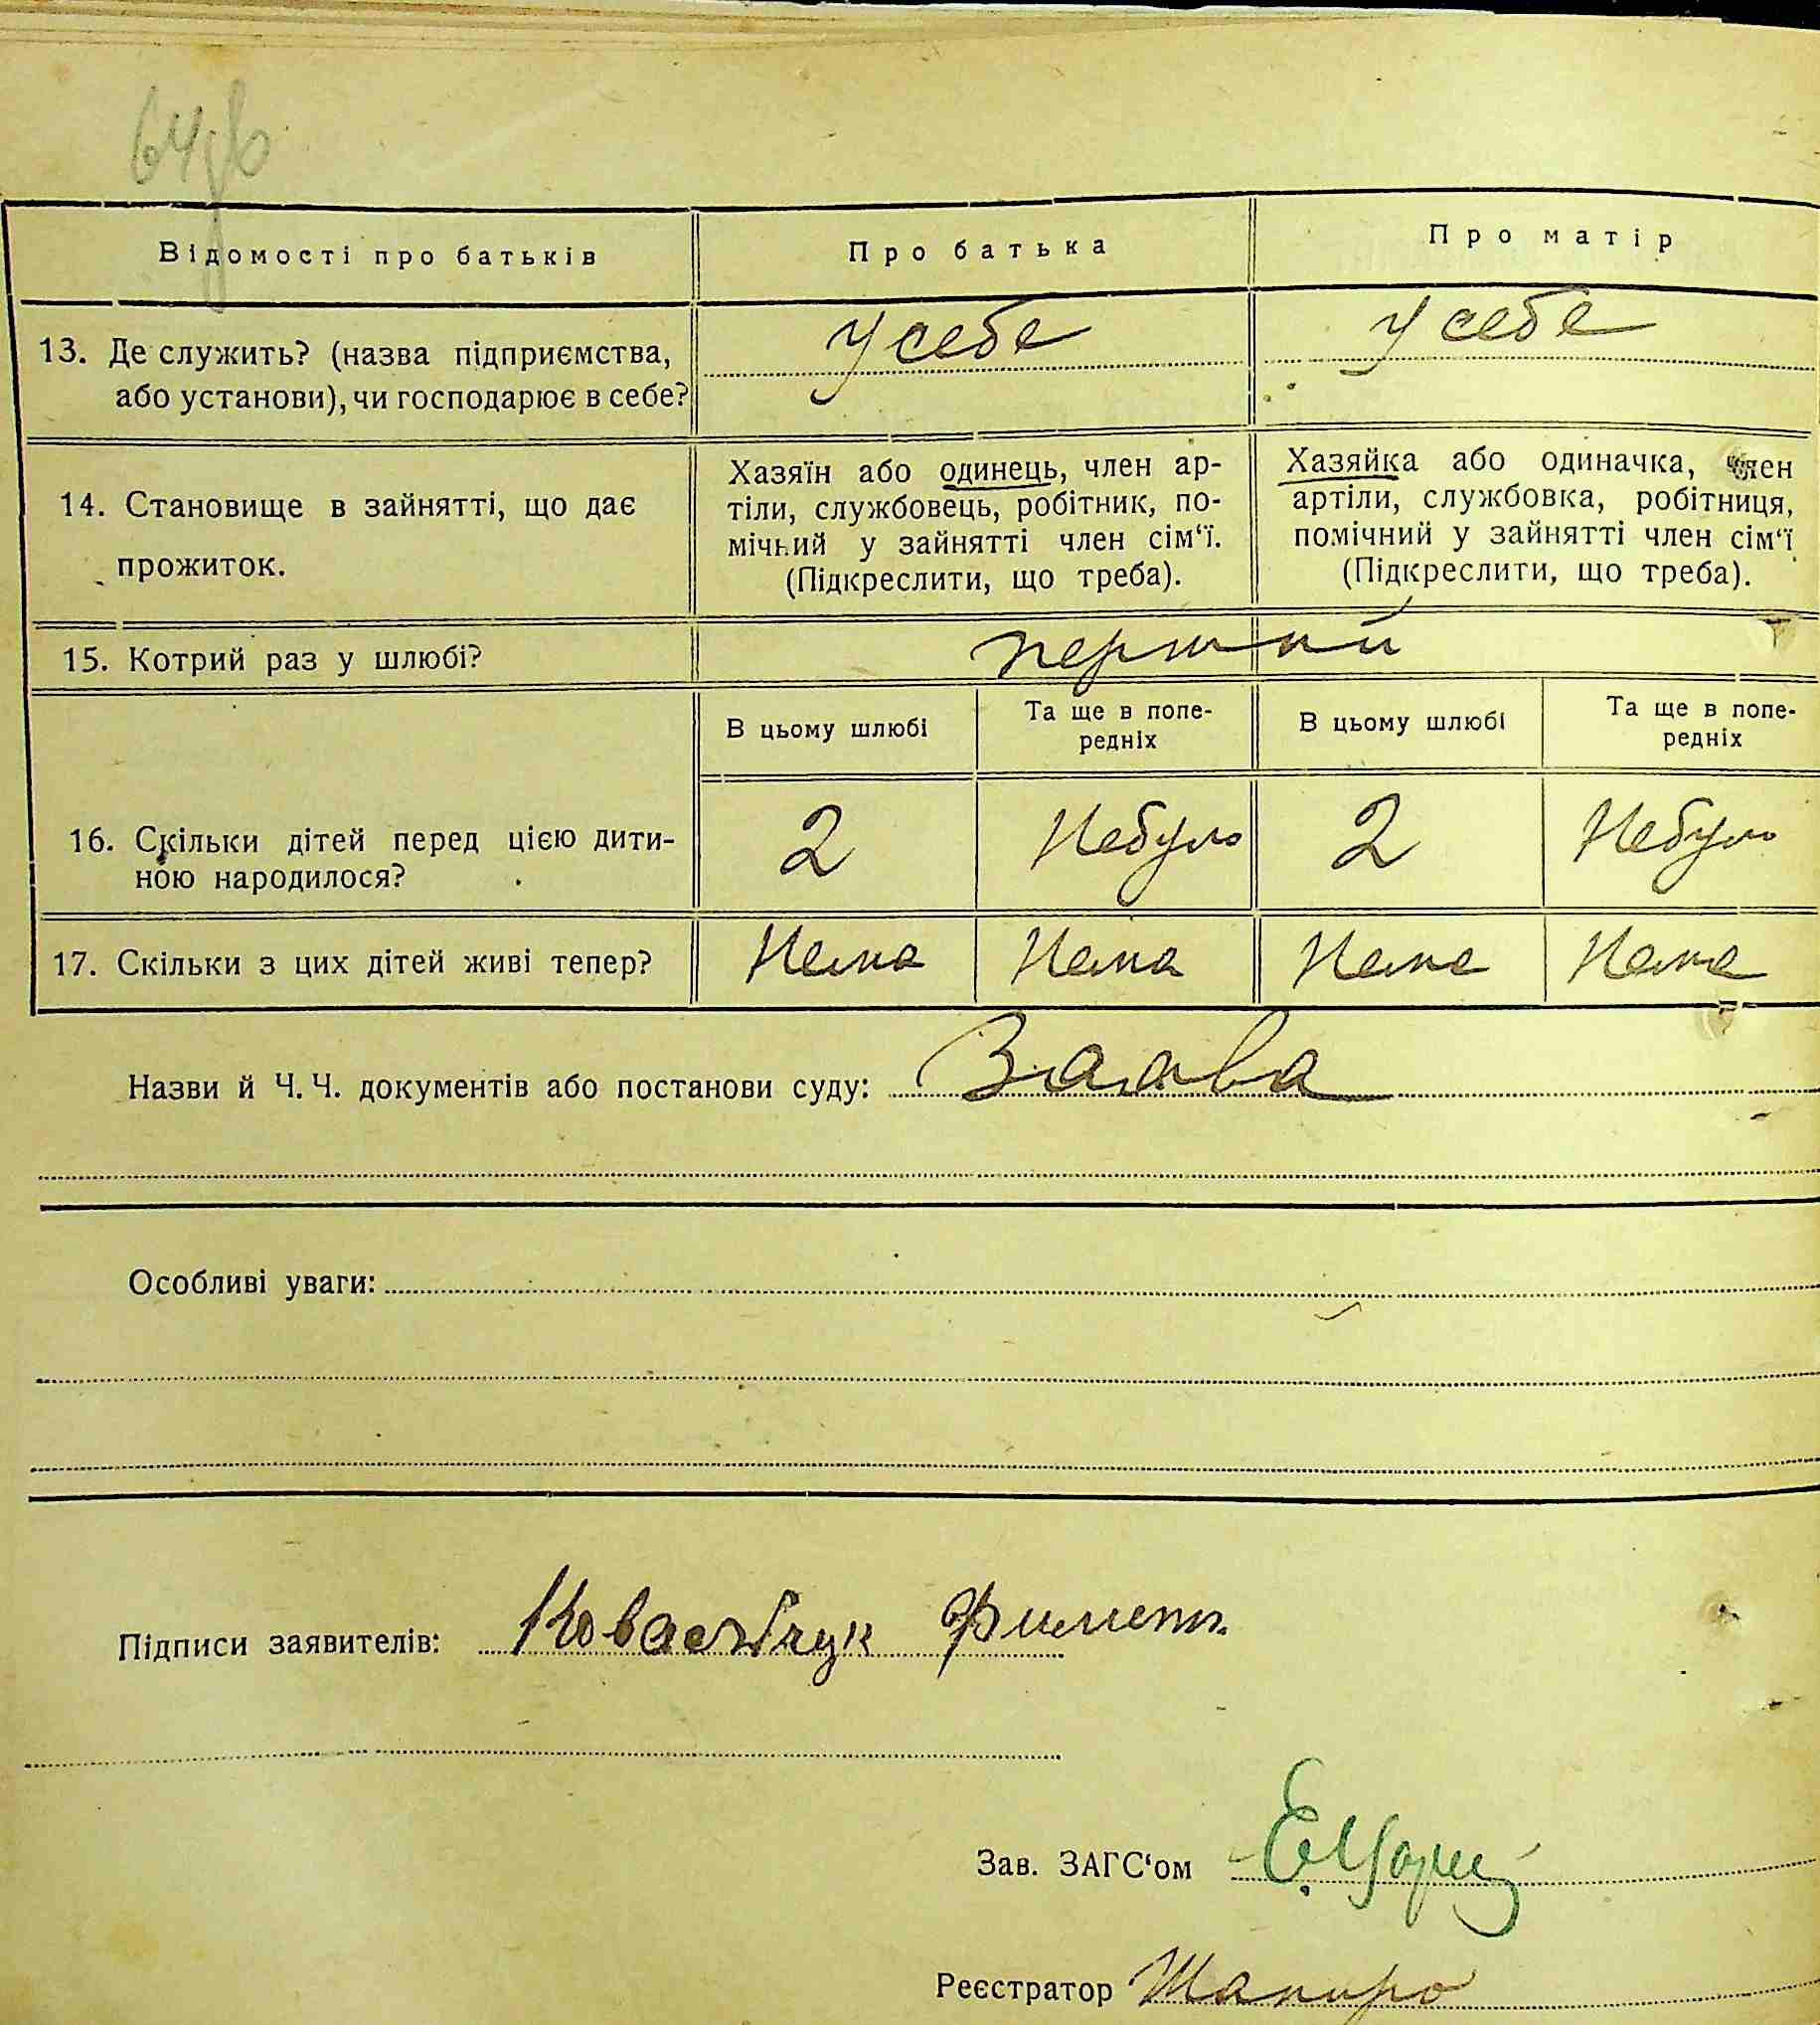 64зв
Відомості про батьків
Про батька
Про матір
13. Де служить? (назва підприємства,
або установи), чи господарює в себе?
У себе
У себе
14. Становище в зайнятті, що дає
прожиток.
Хазяїн або одинець, член ар-
тіли, службовець, робітник, по-
мічний у зайнятті член сім‘ї.
(Підкреслити, що треба).
Хазяйка або одиначка, член
артіли, службовка, робітниця,
помічний у зайнятті член сім‘ї
(Підкреслити, що треба).
15. Котрий раз у шлюбі?
перший
В цьому шлюбі
Та ще в попе-
редніх
В цьому шлюбі
Та ще в попе-
редніх
16. Скільки дітей перед цією дити-
ною народилося?
2
Небуло
2
Небуло
17. Скільки з цих дітей живі тепер?
Нема
Нема
Нема
Нема
Назви й Ч. Ч. документів або постанови суду: Заява
Особливі уваги:
Підписи заявителів: Ковальчук
Зав. ЗАГС‘ом
Реєстратор Шапиро